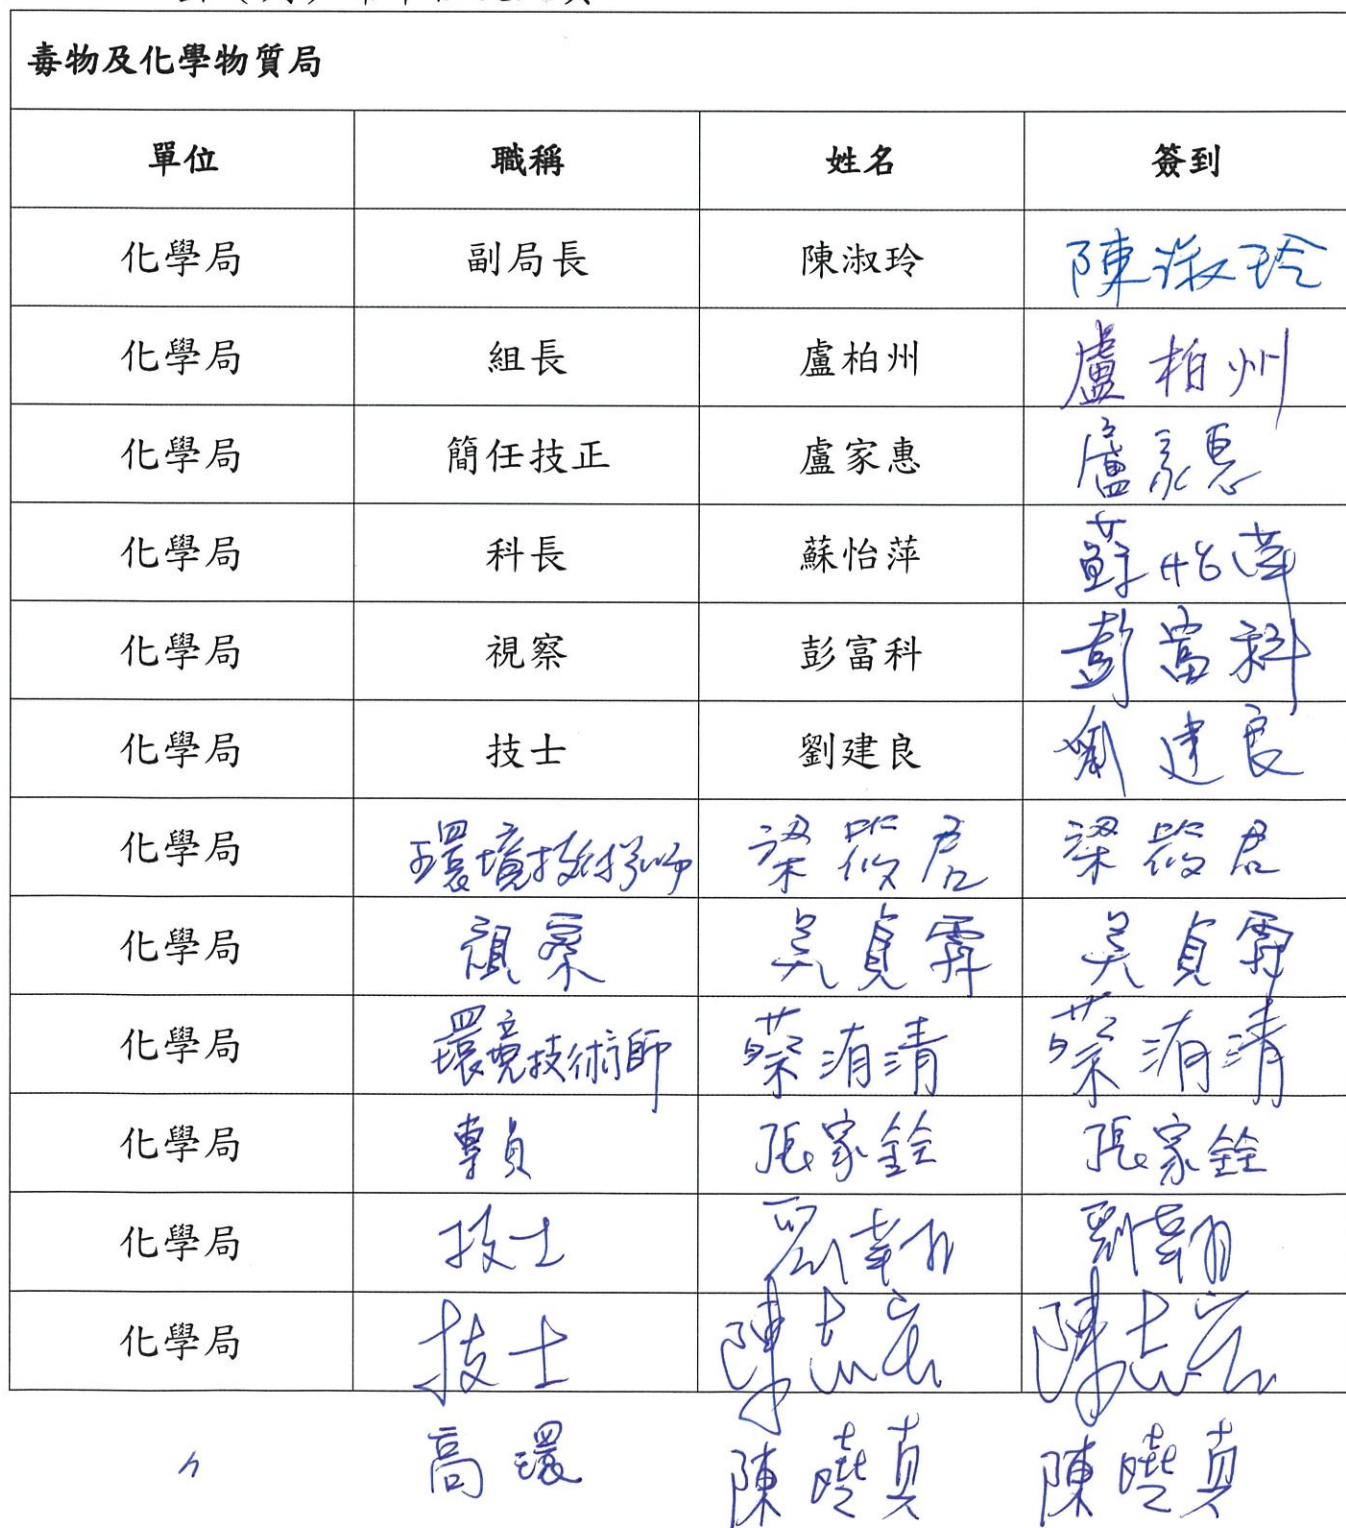 毒物及化學物質局
單位 職稱 姓名 簽到
化學局 副局長 陳淑玲 陳淑玲
化學局 組長 盧柏州 盧柏州
化學局 簡任技正 盧家惠 盧家惠
化學局 科長 蘇怡萍 蘇怡萍
化學局 視察 彭富科 彭富科
化學局 技士 劉建良 劉建良
化學局 環境技術師 梁筱君 梁筱君
化學局 視察 吳貞霏 吳貞霏
化學局 環境技術師 蔡洧清 蔡洧清
化學局 專員 張家銓 張家銓
化學局 技士 劉韋翔 劉韋翔
化學局 技士 陳志宏 陳志宏
〃 高環 陳曉真 陳曉真